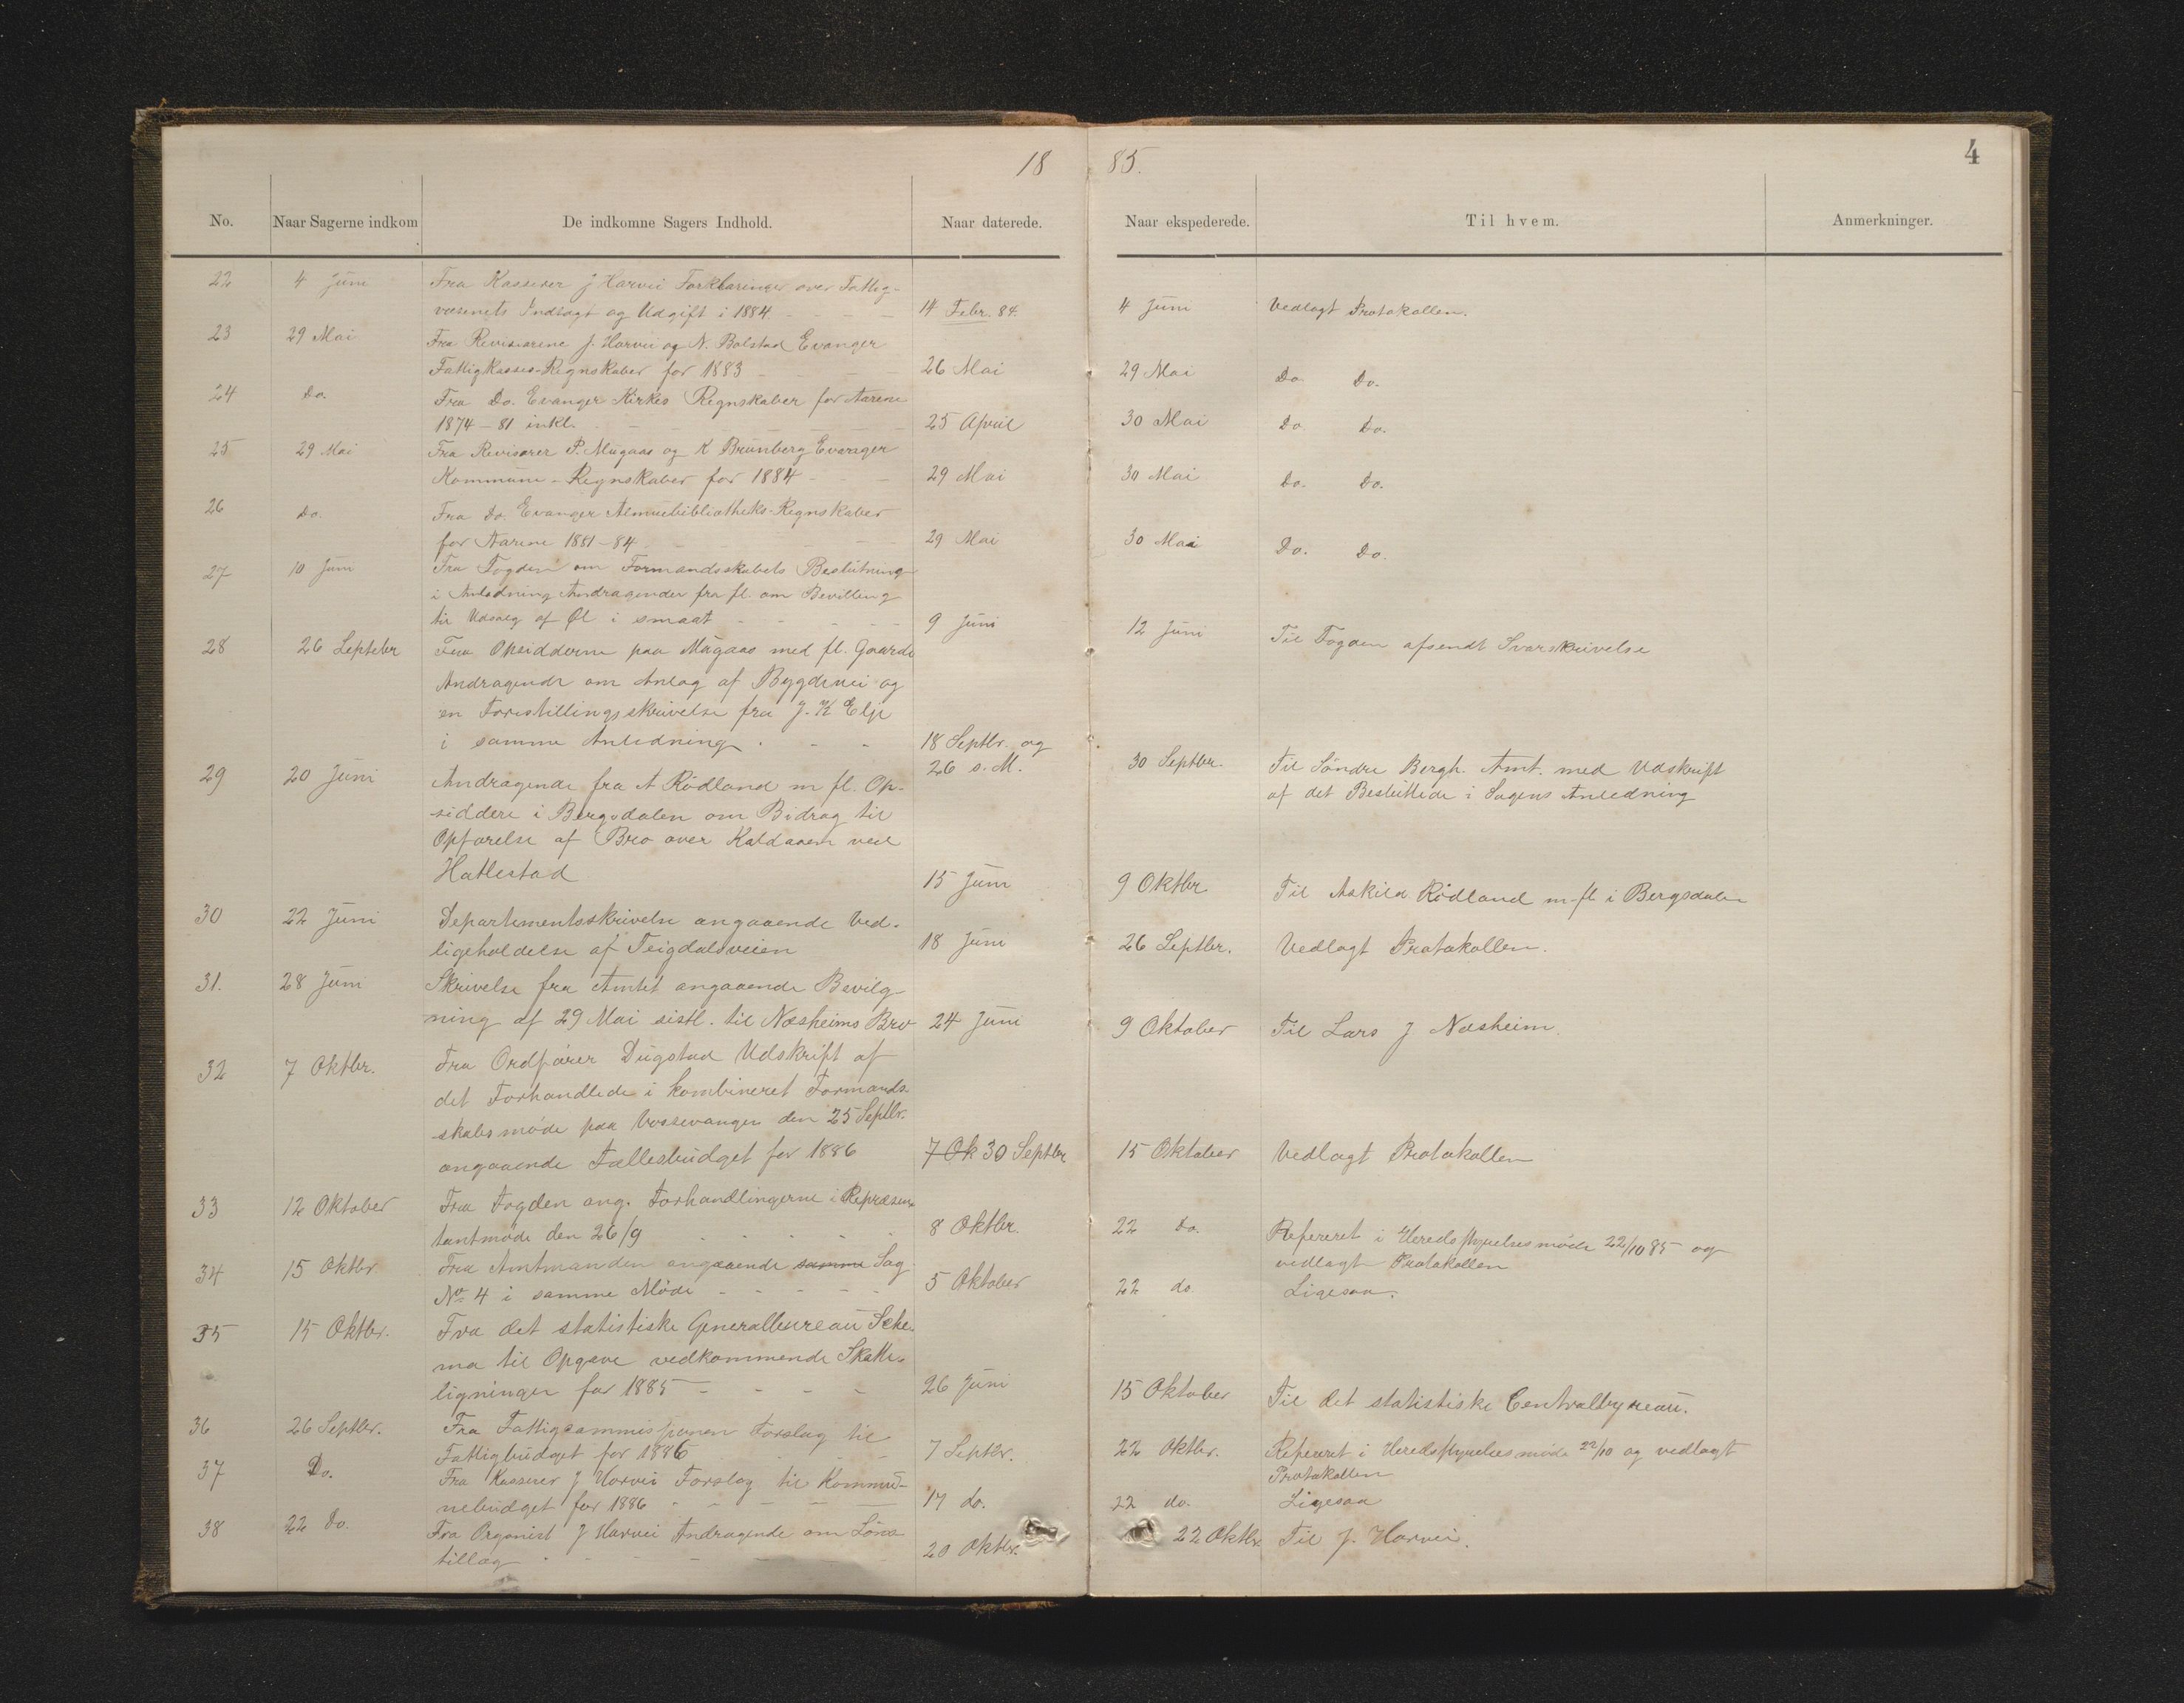 18 85.
4
No. Naar Sagerne indkom De indkomne Sagers Indhold. Naar daterede. Naar ekspederede. Til hvem. Anmerkninger.
22 4 Juni Fra Kasserer J Horvei Forklaringer over Fattig-
væsenets Indtægt og Udgift i 1884. 14 Febr. 84. 4 Juni Vedlagt Protokollen.
23 29 Mai Fra Revisorerne J. Horvei og N. Bolstad Evanger
Fattigkasses-Regnskaber for 1883 26 Mai 29 Mai Do. Do.
24 Do. Fra Do. Evanger Kirkes Regnskaber for Aarene
1874-81 inkl. 25 April 30 Mai Do Do.
25 29 Mai Fra Revisorer P. Mugaas og K Brunberg Evanger
Kommune-Regnskaber for 1884 29 Mai 30 Mai Do. Do.
26 Do. Fra Do. Evanger Almuebibliotheks-Regnskaber
for Aarene 1881-84 29 Mai 30 Mai Do. Do.
27 10 Juni Fra Fogden om Formandsskabets Beslutning
i Anledning Andragender fra fl. om Bevilling
til Udsalg af Øl i smaat 9 Juni 12 Juni Til Fogden afsendt Svarskrivelse
28 26 Septeber Fra Opsidderne paa Mugaas med fl. Gaarde
Andragende om Anlæg af Bygdevei og
en Forestillingsskrivelse fra J. K Elje
i samme Anledning. 18 Septbr. og
26 s. M. 30 Septbr. Til Söndre Bergh. Amt. med Udskrift
af det Besluttede i Sagens Anledning
29 20 Juni Andragende fra A Rödland m fl. Op-
siddere i Bergsdalen om Bidrag til
Opførelse af Bro over Kaldaaen ved
Hatlestad 15 Juni 9 Oktbr. Til Askild Rödland m-fl i Bergsdalen
30 22 Juni Departementsskrivelse angaaende Ved-
ligeholdelse af Teigdalsveien 18 Juni 26 Septbr. Vedlagt Protokollen.
31. 28 Juni Skrivelse fra Amtet angaaende Bevilg-
ning af 29 Mai sistl. til Næsheims Bro 24 Juni 9 Oktober Til Lars J Næsheim.
32 7 Oktbr. Fra Ordfører Dugstad Udskrift af
det Forhandlede i kombineret Formands-
skabsmöde paa Vossevangen den 25 Septbr.
angaaende Fællesbudget for 1886 7 Ok 30 Septbr 15 Oktober Vedlagt Protokollen
33 12 Oktober Fra Fogden ang. Forhandlingerne i Repræsen-
tantmöde den 26/9 8 Oktbr. 22 Do. Refereret i Heredsstyrelsesmöde 22/10 85 og
vedlagt Protokollen
34 15 Oktbr Fra Amtmanden angaaende samme Sag
No 4 i samme Möde 5 Oktober 22 do. Ligesaa.
35 15 Oktbr. Fra det statistiske Generalbureau Sche-
ma til Opgave vedkommende Skatte-
ligninger for 1885 26 Juni 15 Oktober Til det statistiske Centralbyreau.
36 26 Septbr. Fra Fattigcommissionen Forslag til
Fattigbudget for 1886 7 Septbr. 22 Oktbr. Refereret i Heredsstyrelsesmöde 22/10 og vedlagt
Protokollen
37 Do. Fra Kasserer J Horvei Forslag til Kommu-
nebudget for 1886 17 do. 22 do. Ligesaa
38 22 Do. Fra Organist J Horvei Andragende om Löns-
tillæg 20 Oktbr. 22 Oktbr. Til J. Horvei.